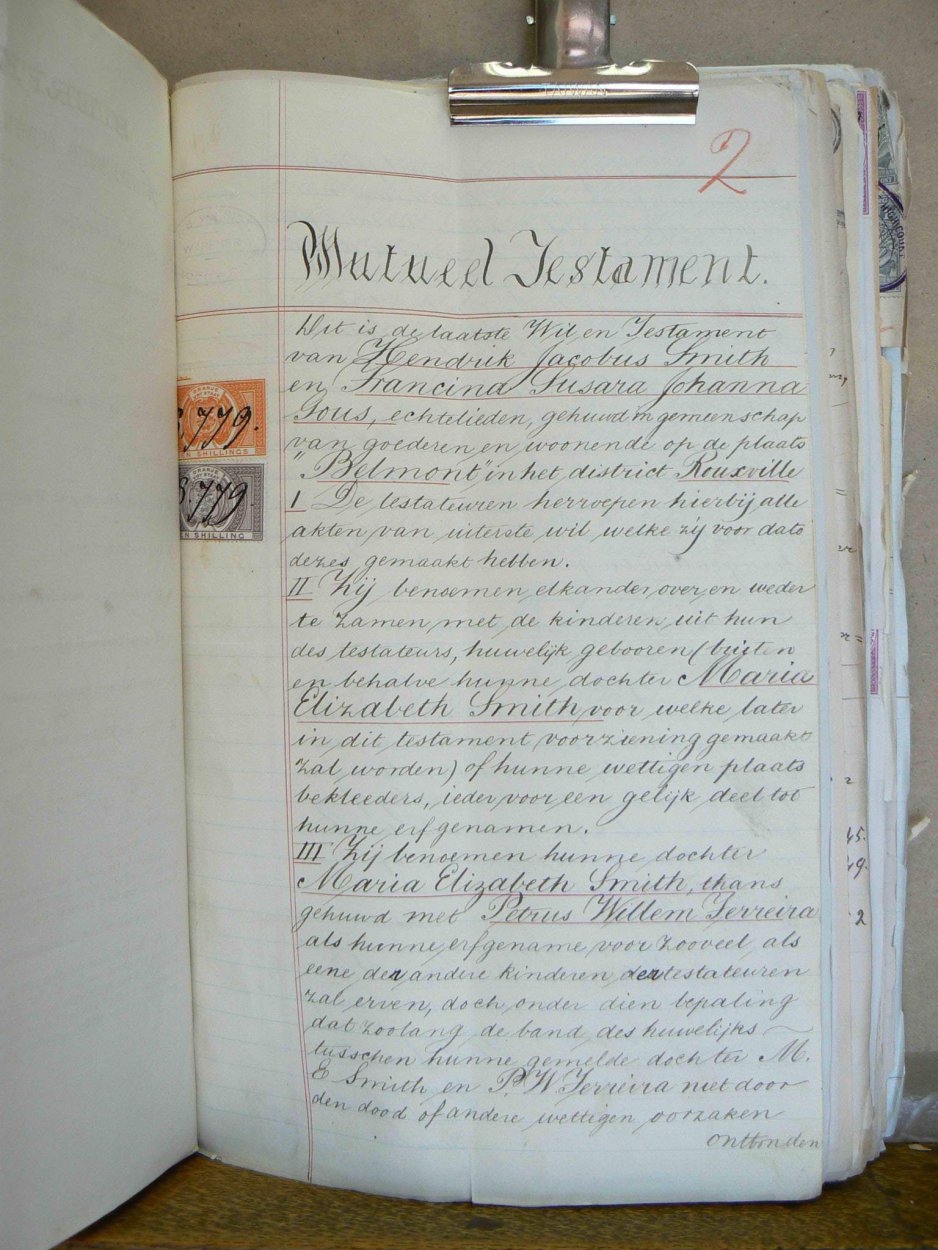 TAIWAN
2
Mutueel Testament.
Dit is de laatste Wil en Testament
van Hendrik Jacobus Smith
en Francina Susara Johanna
Gous, echtelieden, gehuwd in gemeenschap
van goederen en woonende op de plaats
"Belmont" in het district Rouxville
I De testateuren herroepen hierbij alle
akten van uiterste wil welke zij voor dato
dezes gemaakt hebben.
II Zij benoemen elkander over en weder
te zamen met de kinderen uit hun
des testateurs, huwelijk gebooren (buiten
en behalve hunne dochter Maria
Elizabeth Smith voor welke later
in dit testament voorziening gemaakt
zal worden) of hunne wettigen plaats
bekleeders, ieder voor een gelijk deel tot
hunne erfgenamen.
III Zij benoemen hunne dochter
Maria Elizabeth Smith, thans
gehuwd met Petrus Willem Ferreira
als hunne erfgename voor zooveel als
eene der andere kinderen der testateuren
zal erven, doch onder dien bepaling
dat zoolang de band des huwelijks
tusschen hunne gemelde dochter M.
E Smith en P. W Ferreira niet door
den dood of andere wettigen oorzaken
ontbonden
ORANJE
8.779.
EN SHILLINGS
ORANJE
8.779
N SHILLING
45.
49.
2
2